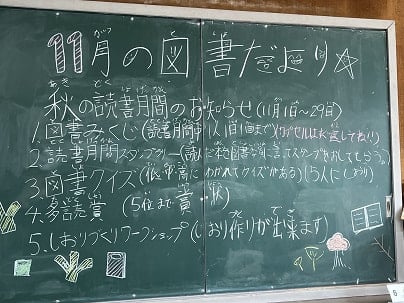 11月の図書だより☆
秋の読書月間のお知らせ(11月1日〜29日)
1.図書みくじ(読書月間中1人1日1個まで)
2.読書月間スタンプラリー(読んだ本を図書
3.図書クイズ(低中高にわかれてクイズがある)(5人にしおり)
4.多読賞(5位まで賞状)
5.しおりづくりワークショップ(しおり作りが出来ます)